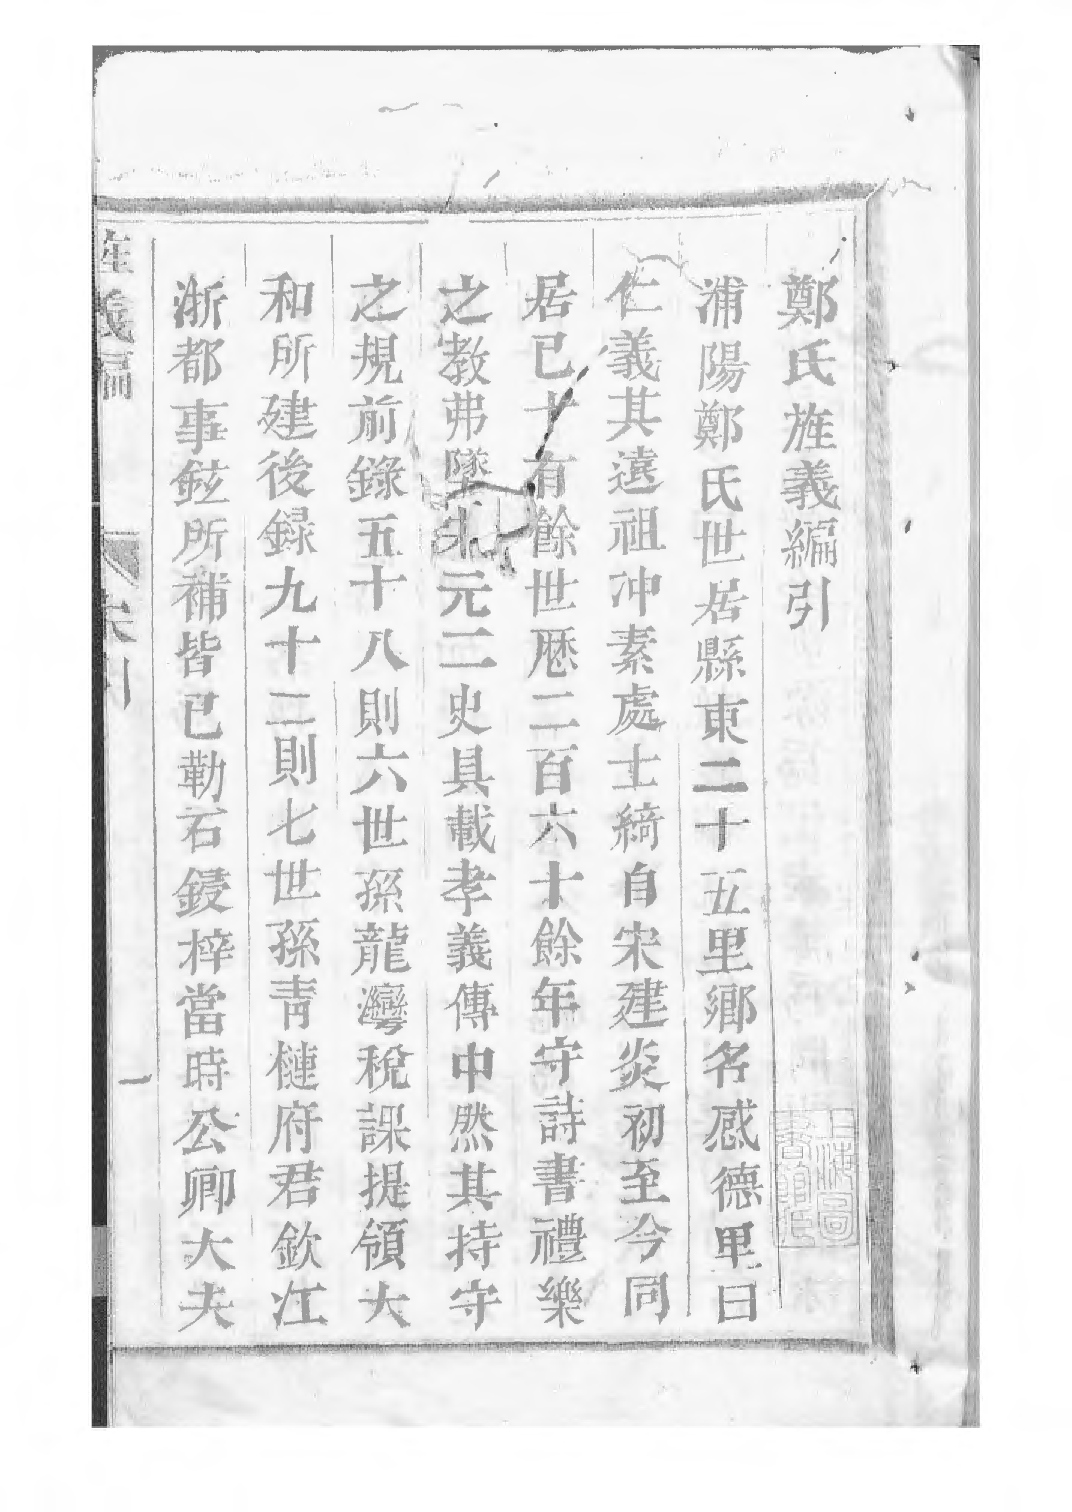 鄭氏旌義編引
浦陽鄭氏世居縣東二十五里鄉名感德里曰
仁義其遠祖冲素處士綺自宋建炎初至今同
居已十有餘世歷二百六十餘年守詩書禮樂
之教弗墜宋元二史具載孝義傳中然其持守
之規前錄五十八則六世孫龍灣稅課提領大
和所建後録九十二則七世孫青槤府君欽江
浙都事鉉所補皆已勒石鋟梓當時公卿大夫
旌義編
一
上海圖書館藏